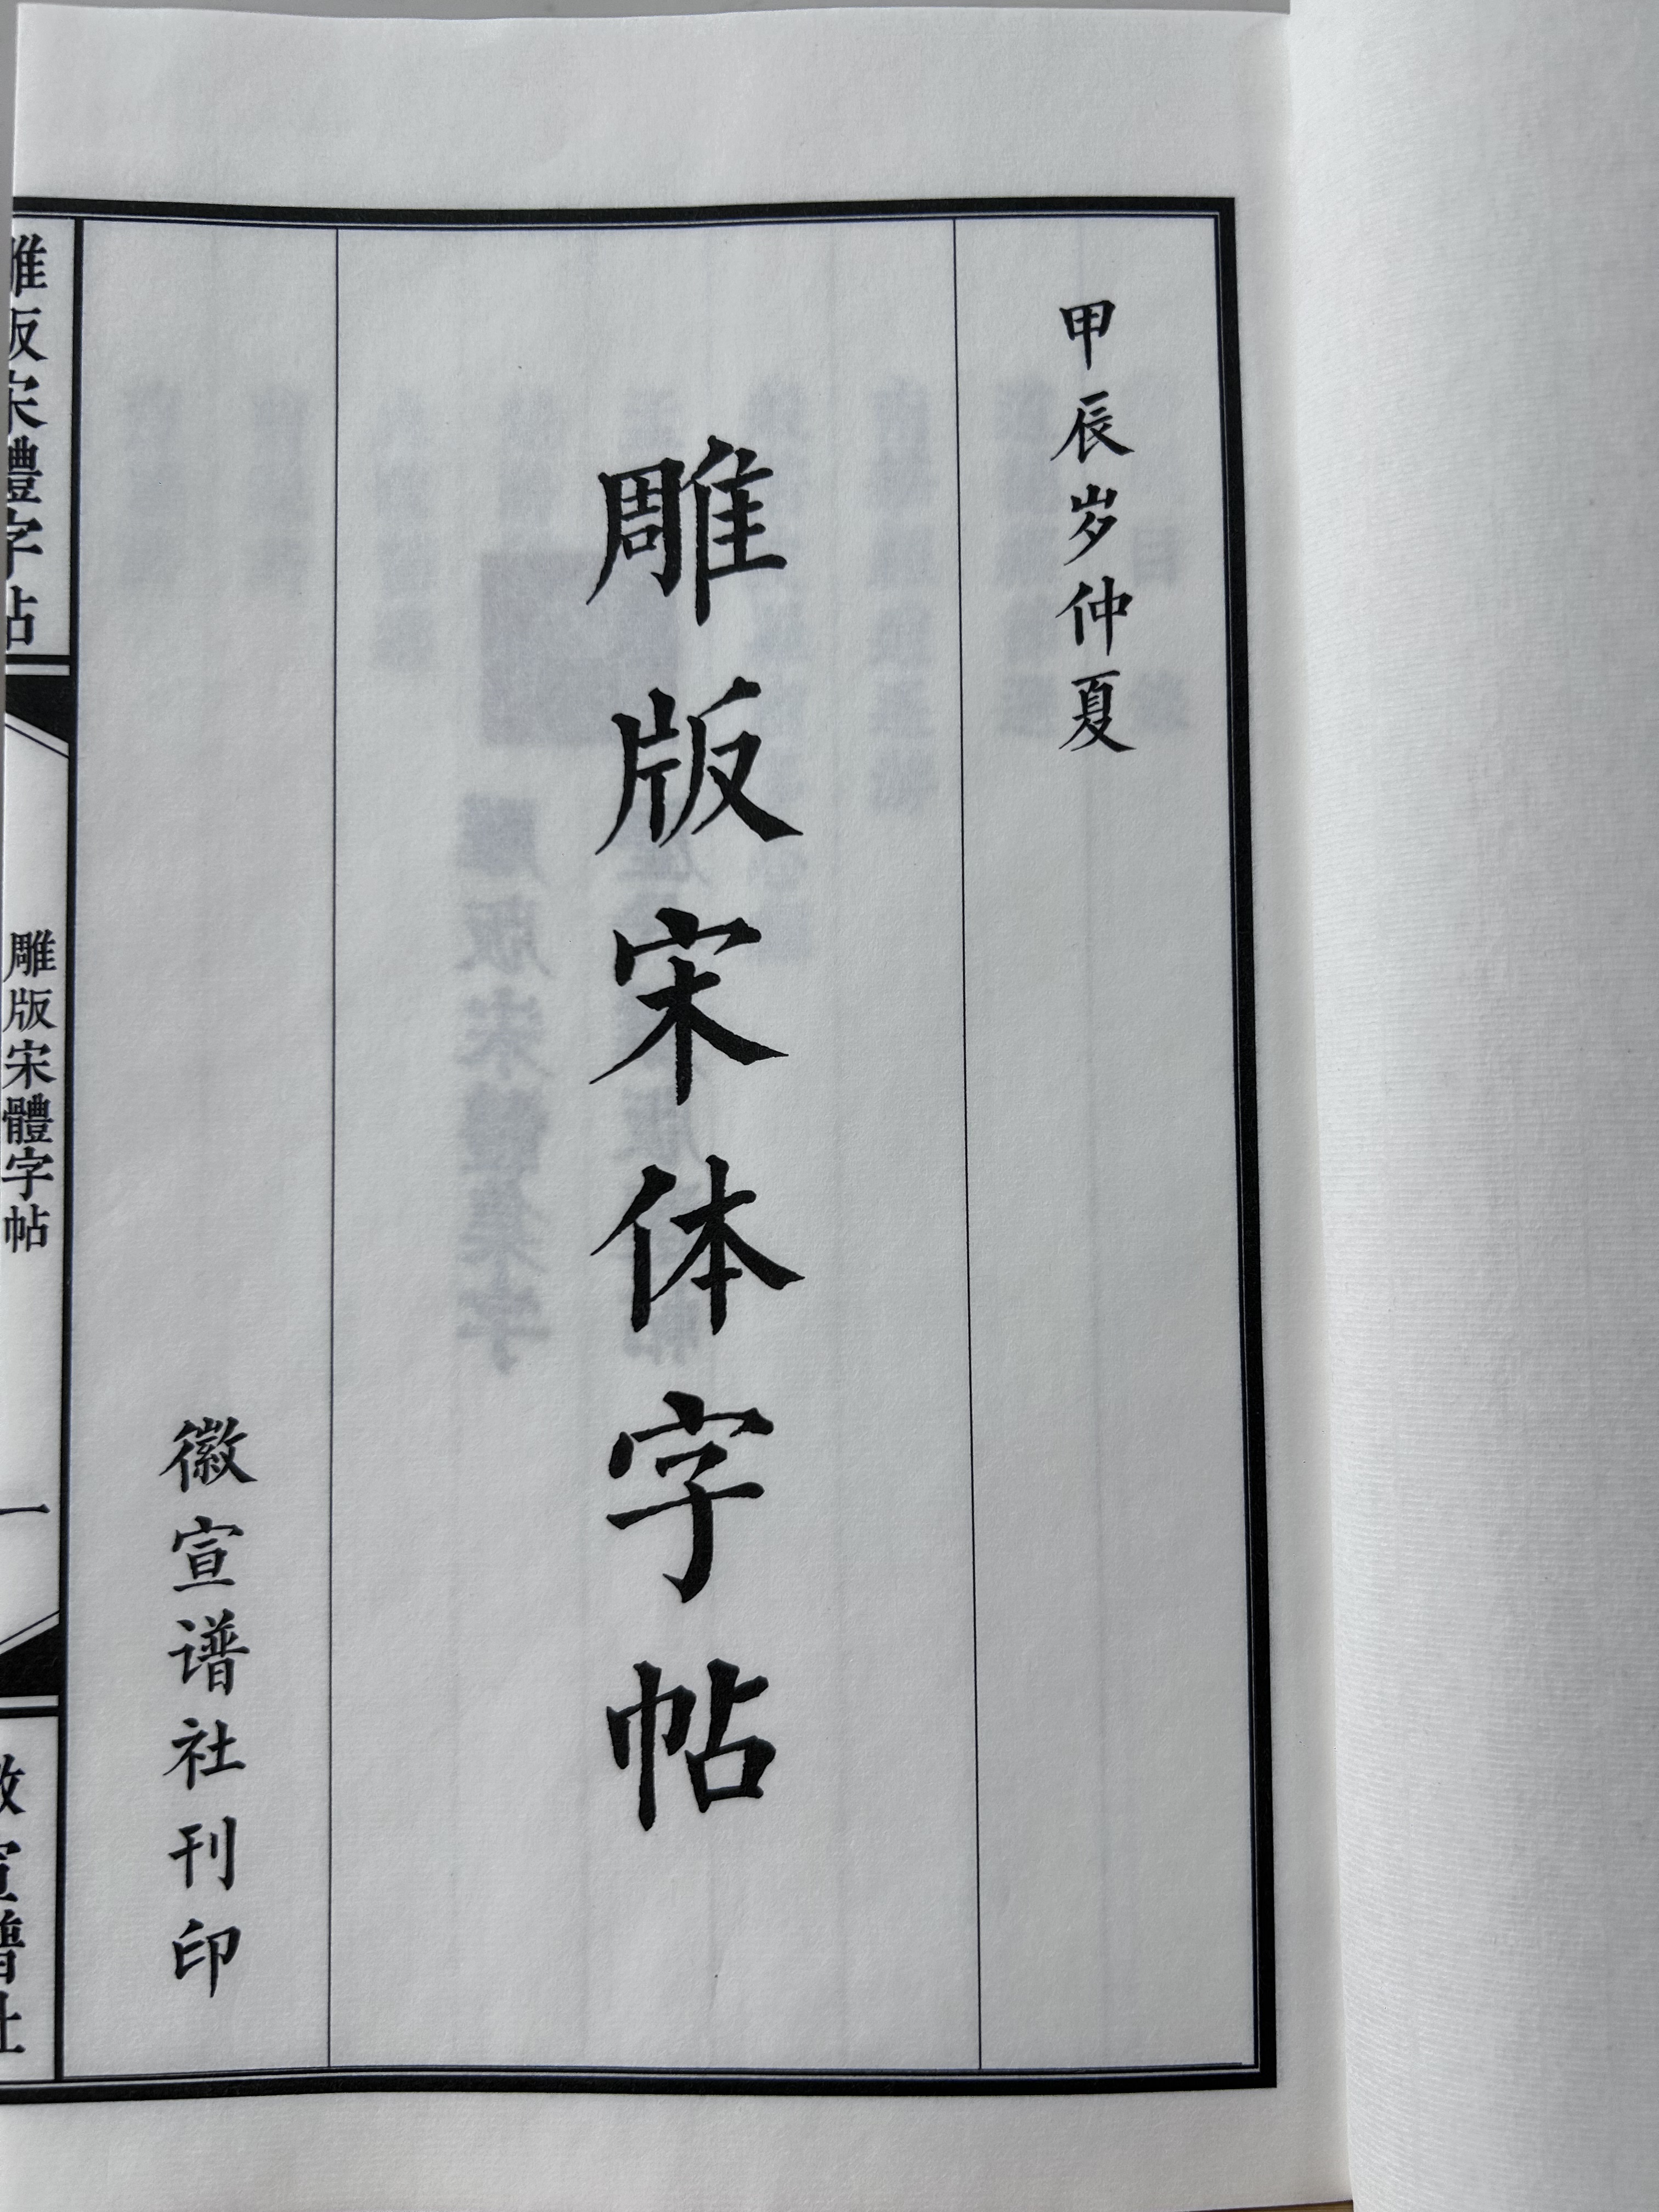 甲辰岁仲夏
雕版宋体字帖
徽宣谱社刊印
雕版宋體字帖
雕版宋體字帖
一
徽宣譜社